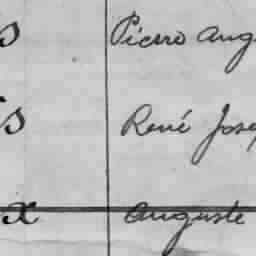 s Pierre Aug
s René Jose
x Auguste